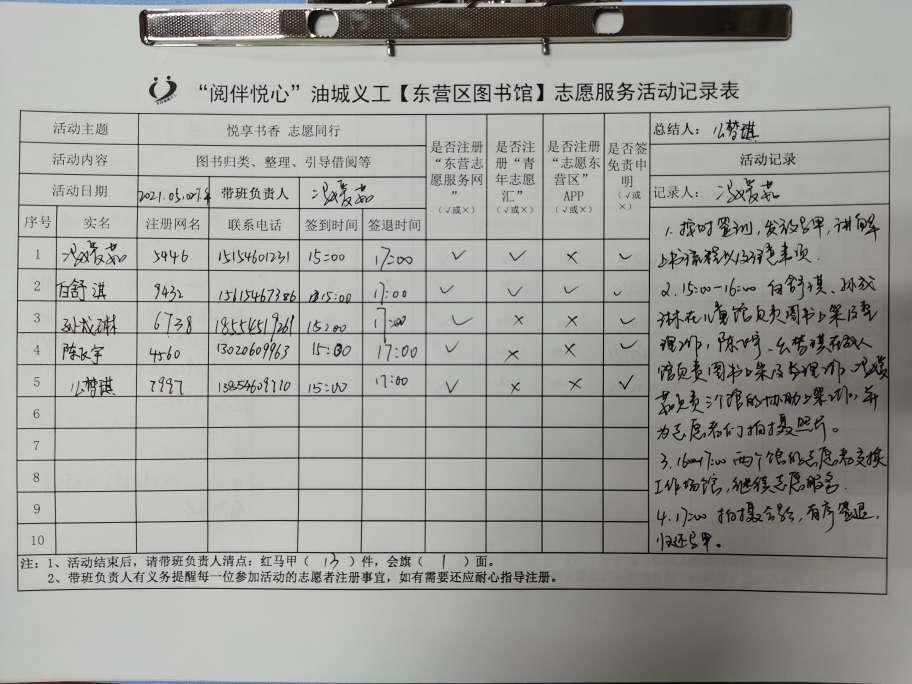 “阅伴悦心”油城义工【东营区图书馆】志愿服务活动记录表
活动主题 悦享书香 志愿同行 是否注册“东营志愿服务网”（√或×） 是否注册“青年志愿汇”（√或×） 是否注册“志愿东营区”APP（√或×） 是否签免责申明（√或×） 总结人：么梦琪
活动内容 图书归类、整理、引导借阅等 活动记录
活动日期 2021.05. 带班负责人 冯媛茹 记录人：冯媛茹
序号 实名 注册网名 联系电话 签到时间 签退时间
1 冯媛茹 5446 15154601231 15:00 17:00 √ √ × √
2 白舒淇 9432 15615467386 15:00 17:00 √ √ √ √
3 孙成琳 6738 18554519261 15:00 17:00 √ × × √
4 陈 宇 4560 13020609963 15:00 17:00 √ × × √
5 么梦琪 7997 13854609770 15:00 17:00 √ × × √
6
7
8
9
10
1. 按时签到，发放马甲，讲解
上书流程以及注意事项.
2. 15:00-16:00 白舒琪、孙成
琳在儿童馆负责图书上架及整
理工作，陈 宇、么梦琪在成人
馆负责图书上架及整理工作，冯媛
茹负责 馆的协助上架工作，并
为志愿者们拍摄照片。
3. 16:00-17:00 两个馆的志愿者交换
工作场馆，继续志愿服务.
4. 17:00 拍摄合影，有序签退，
归还马甲。
注：1、活动结束后，请带班负责人清点：红马甲（ 13 ）件，会旗（ 1 ）面。
2、带班负责人有义务提醒每一位参加活动的志愿者注册事宜，如有需要还应耐心指导注册。